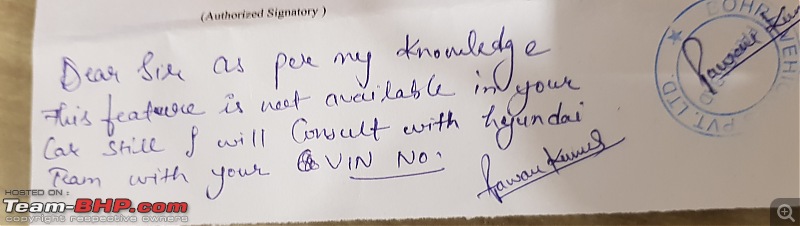 (Authorized Signatory)
Dear Sir as per my knowledge
This feature is not available in your
Car still I will Consult with hyundai
Team with your VIN No:
Pawan Kumar
Pawan Kumar
PVT. LTD.
HOSTED ON:
Team-BHP.com
copyright respective owners